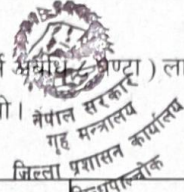 अवधि ८ घण्टा ) ला
ो।
नेपाल सरकार
गृह मन्त्रालय
जिल्ला प्रशासन कार्यालय